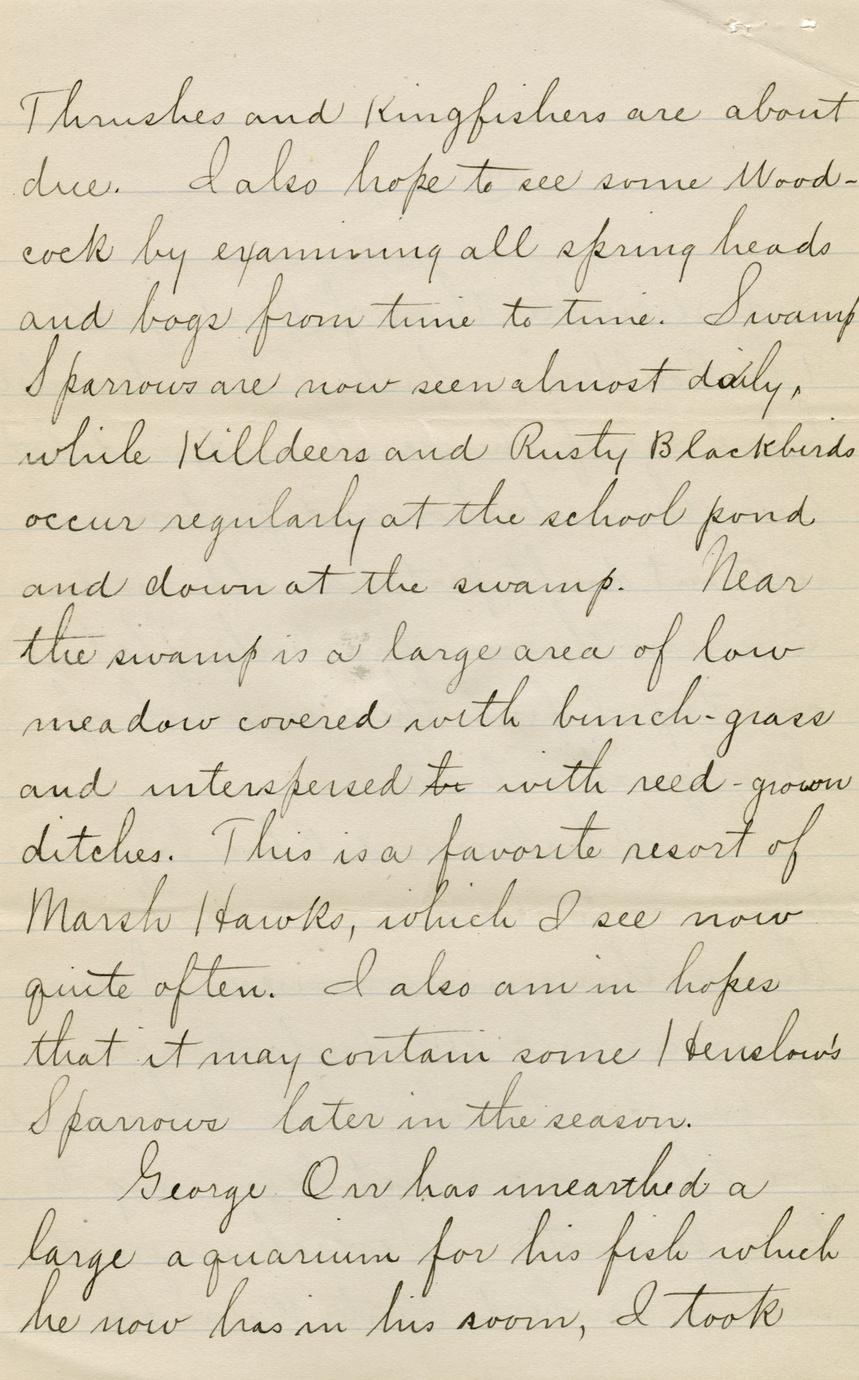 Thrushes and Kingfishers are about
due. I also hope to see some Wood-
cock by examining all spring heads
and bogs from time to time. Swamp
Sparrows are now seen almost daily,
while Killdeers and Rusty Blackbirds
occur regularly at the school pond
and down at the swamp. Near
the swamp is a large area of low
meadow covered with bunch-grass
and interspersed with reed-grown
ditches. This is a favorite resort of
Marsh Hawks, which I see now
quite often. I also am in hopes
that it may contain some Henslow's
Sparrows later in the season.
George Orr has unearthed a
large aquarium for his fish which
he now has in his room, I took